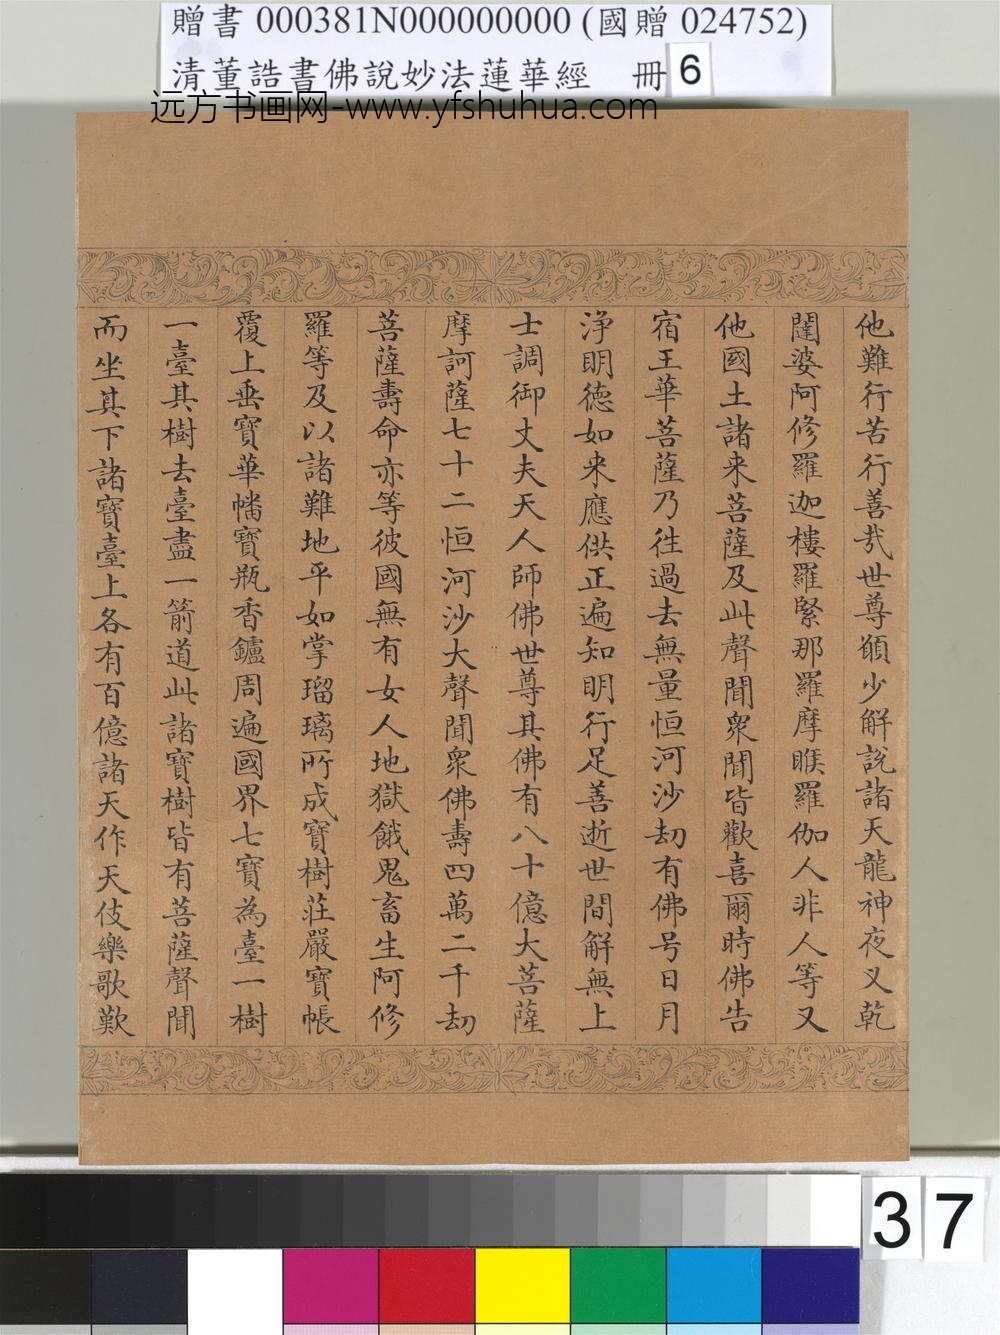 贈書 000381N000000000 (國贈 024752)
清董誥書佛說妙法蓮華經 冊 6
远方书画网-www.yfshuhua.com
他難行苦行善哉世尊願少解說諸天龍神夜叉乾
闥婆阿修羅迦樓羅緊那羅摩睺羅伽人非人等又
他國土諸来菩薩及此聲聞衆聞皆歡喜爾時佛告
宿王華菩薩乃往過去無量恒河沙劫有佛号日月
淨明德如来應供正遍知明行足善逝世間解無上
士調御丈夫天人師佛世尊其佛有八十億大菩薩
摩訶薩七十二恒河沙大聲聞衆佛壽四萬二千劫
菩薩壽命亦等彼國無有女人地獄餓鬼畜生阿修
羅等及以諸難地平如掌瑠璃所成寶樹莊嚴寶帳
覆上垂寶華幡寶瓶香鑪周遍國界七寶為臺一樹
一臺其樹去臺盡一箭道此諸寶樹皆有菩薩聲聞
而坐其下諸寶臺上各有百億諸天作天伎樂歌歎
37